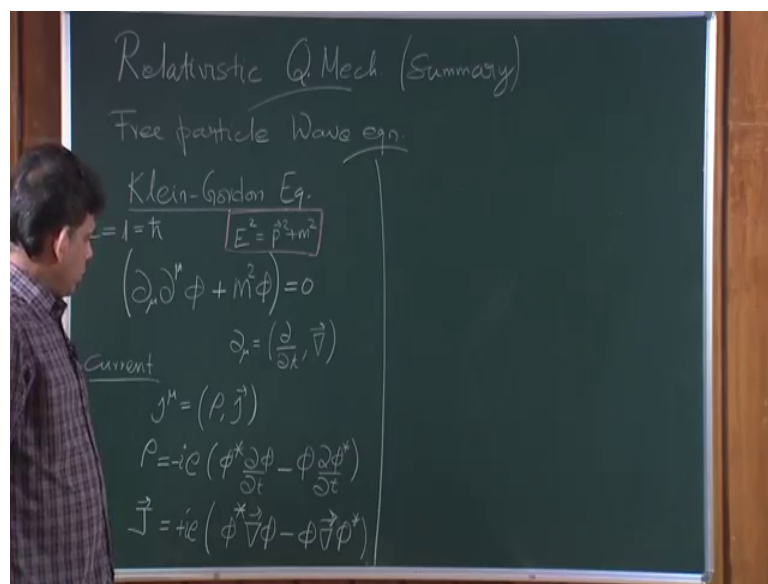 Relativistic Q. Mech. (Summary)
Free particle Wave eqn.
Klein-Gordon Eq.
= 1 = ħ
E² = p⃗² + m²
(∂_μ ∂^μ φ + m² φ) = 0
∂_μ = (∂/∂t, ∇⃗)
Current
j^μ = (ρ, j⃗)
ρ = -ie (φ* ∂φ/∂t - φ ∂φ*/∂t)
J⃗ = +ie (φ* ∇⃗φ - φ ∇⃗φ*)